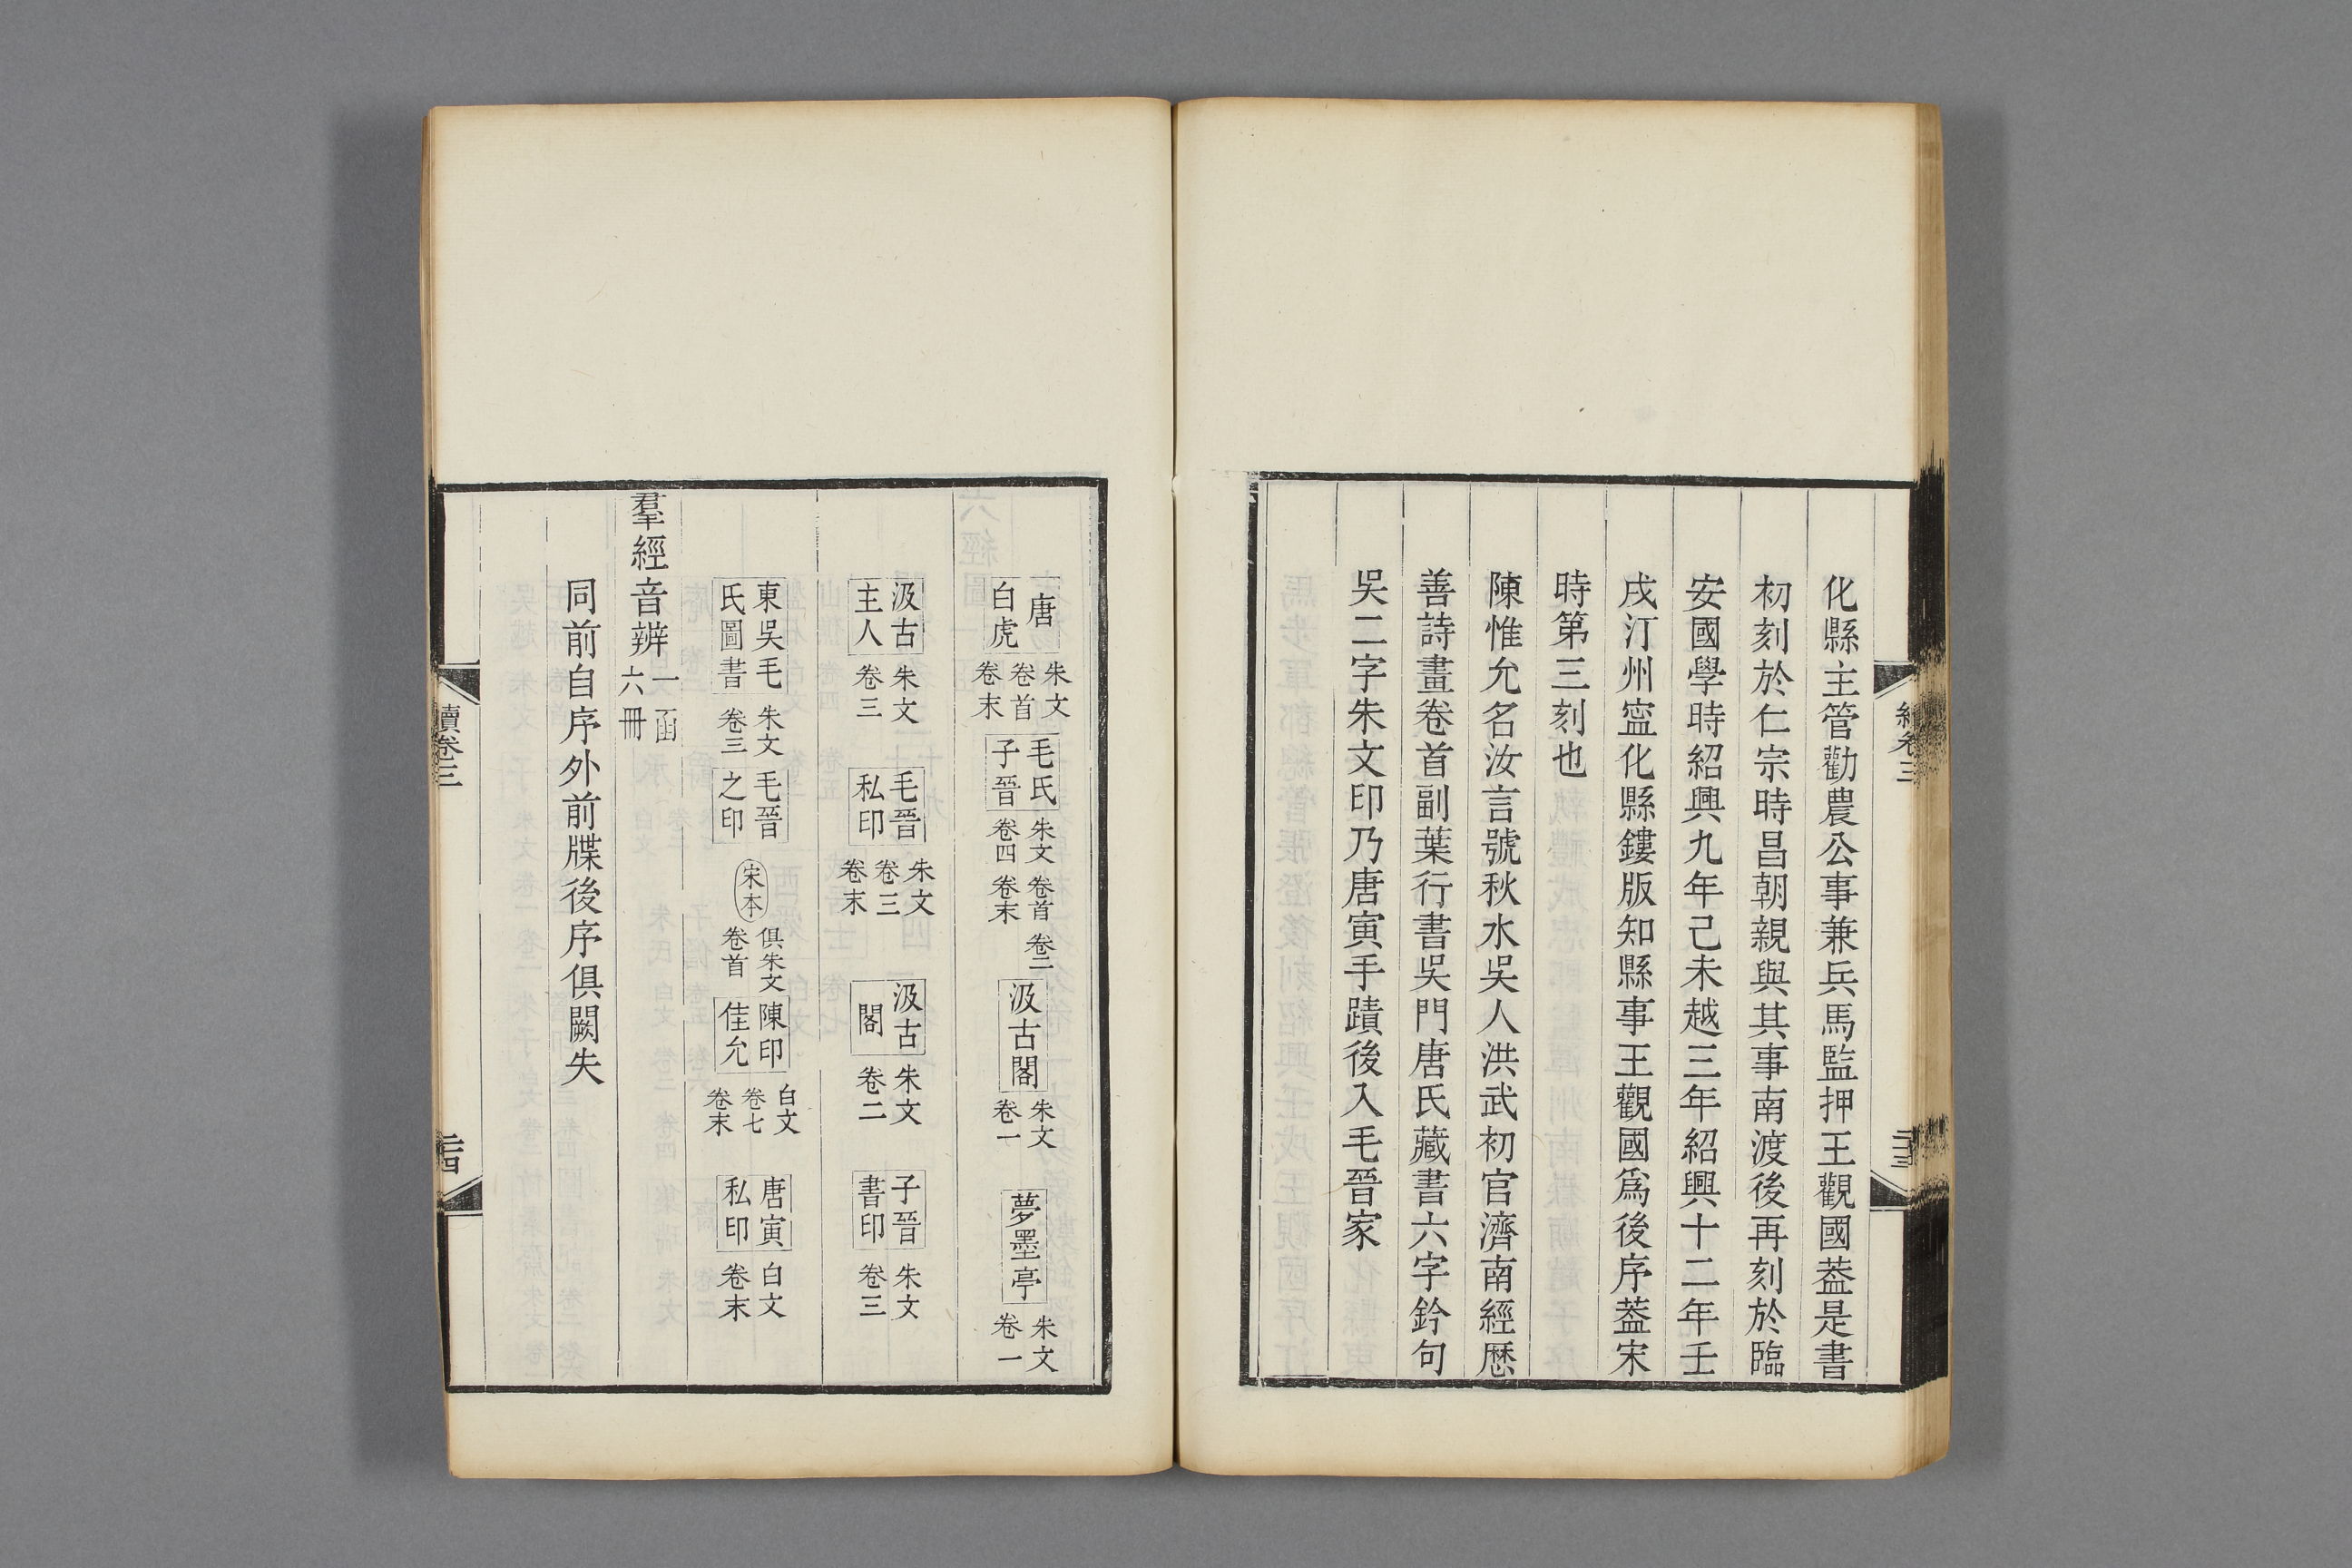 化縣主管勸農公事兼兵馬監押王觀國葢是書
初刻於仁宗時昌朝親與其事南渡後再刻於臨
安國學時紹興九年己未越三年紹興十二年壬
戌汀州寍化縣鏤版知縣事王觀國爲後序葢宋
時第三刻也
陳惟允名汝言號秋水吳人洪武初官濟南經歷
善詩畫卷首副葉行書吳門唐氏藏書六字鈐句
吳二字朱文印乃唐寅手蹟後入毛晉家
唐
白虎
朱文
卷首
卷末
毛氏
子晉
朱文
卷四
卷首
卷末
卷二
汲古閣
朱文
卷一
夢墨亭
朱文
卷一
汲古
主人
朱文
卷三
毛晉
私印
朱文
卷三
卷末
汲古
閣
朱文
卷二
子晉
書印
朱文
卷三
東吳毛
氏圖書
朱文
卷三
毛晉
之印
宋本
俱朱文
卷首
陳印
隹允
白文
卷七
卷末
唐寅
私印
白文
卷末
羣經音辨
一函
六冊
同前自序外前牒後序俱闕失
續卷三
二十四